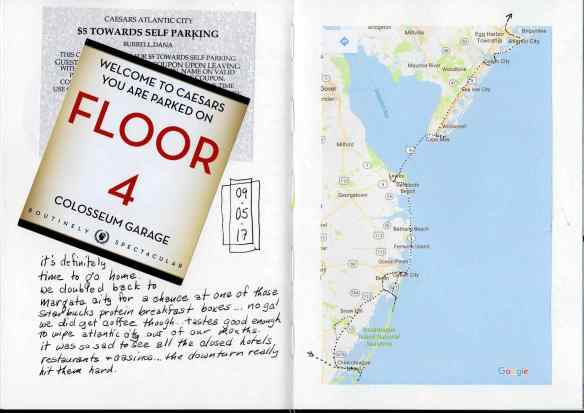 CAESARS ATLANTIC CITY
$5 TOWARDS SELF PARKING
BURRELL,DANA
WELCOME TO CAESARS
YOU ARE PARKED ON
FLOOR
4
COLOSSEUM GARAGE
ROUTINELY SPECTACULAR
09
05
17
it's definitely
time to go home.
we doubled back to
Margate city for a chance at one of those
Starbucks protein breakfast boxes... no go!
we did get coffee though. tastes good enough
to wipe atlantic city out of our mouths.
it was so sad to see all the closed hotels,
restaurants + casinos... the downturn really
hit them hard.
Millville
Egg Harbor
Township
Brigantine
Atlantic City
Ocean City
Woodbine
Sea Isle City
Wildwood
Cape May
Milford
Lewes
Rehoboth
Beach
Georgetown
Bethany Beach
Fenwick Island
Ocean Pines
Berlin
Ocean City
Snow Hill
Assateague
Island National
Seashore
Chincoteague
Google